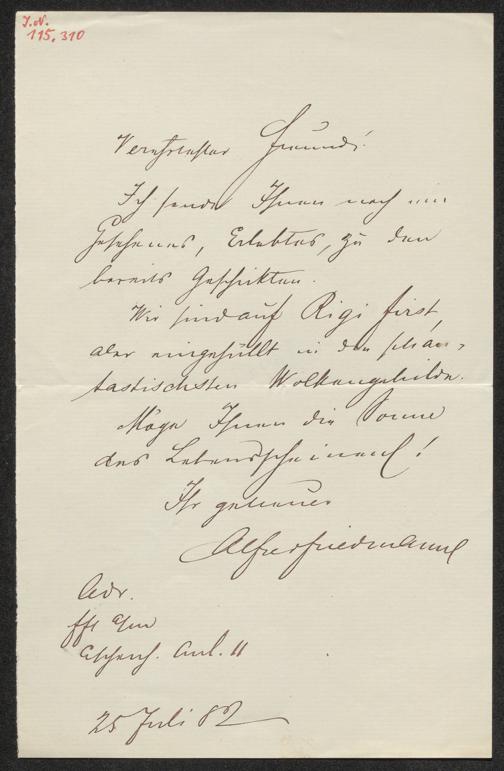 J.N.
115.310
Verehrtester Freund!
Ich sende Ihnen noch ein
Gesehenes, Erlebtes, zu den
bereits Geschickten.
Wir sind auf Rigi first,
aber eingehüllt in den phan-
tastischsten Wolkengebilde.
Möge Ihnen die Sonne
des Lebens scheinen!
Ihr getreuer
Alfred Friedmann
Adr.
Fft a/m
Anl. 11
25 Juli 82